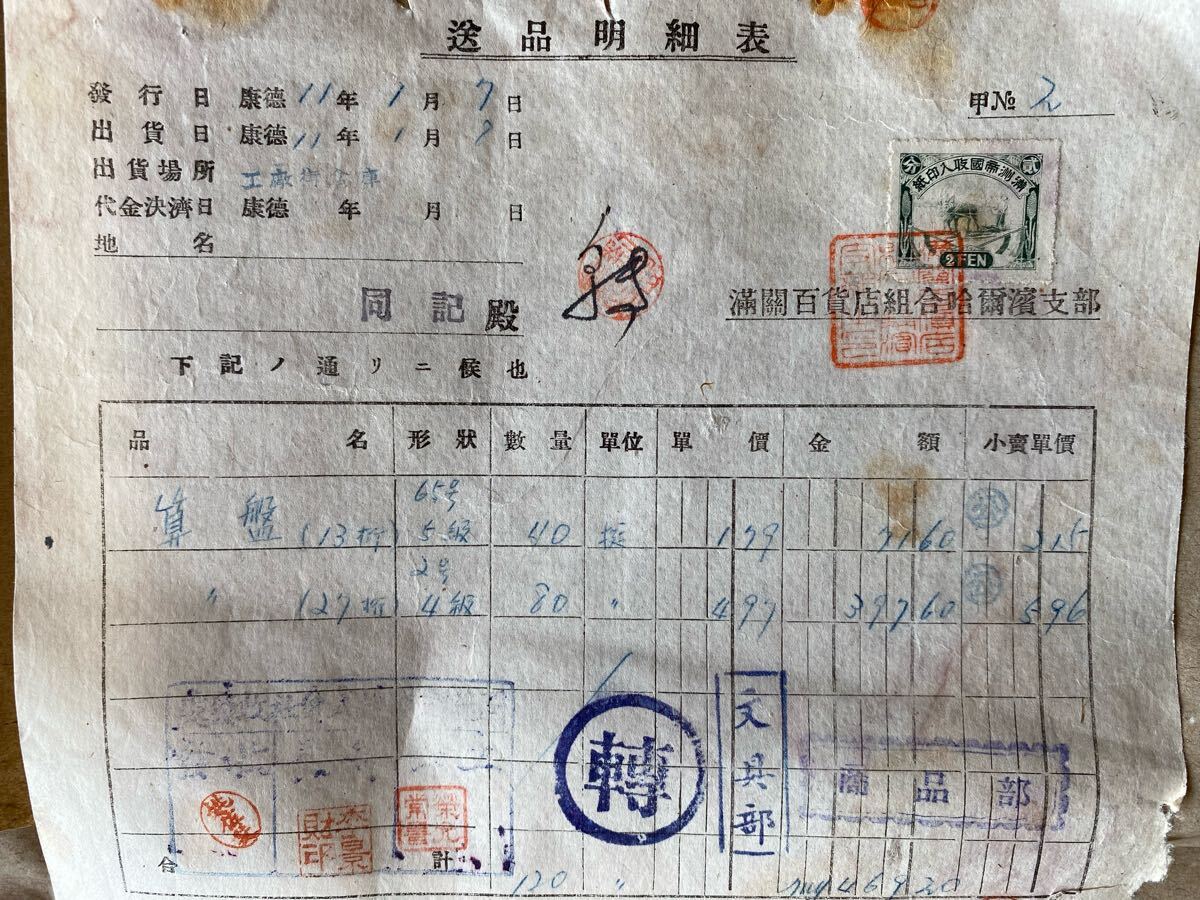 送品明細表
發行日 康德11年1月7日
甲№ 2
出貨日 康德11年1月8日
出貨場所 工廠街倉庫
代金決濟日 康德 年 月 日
地名
貳分
滿洲帝國收入印紙
2 FEN
同記殿
滿關百貨店組合哈爾濱支部
下記ノ通リニ候也
品名 形狀 數量 單位 單價 金額 小賣單價
65号
算盤 (13桁) 5級 40 挺 1 79 71 60 2 15
2号
〃 (27桁) 4級 80 〃 4 97 397 60 5 96
轉
文具部
商品部
合計 120 〃 469 20